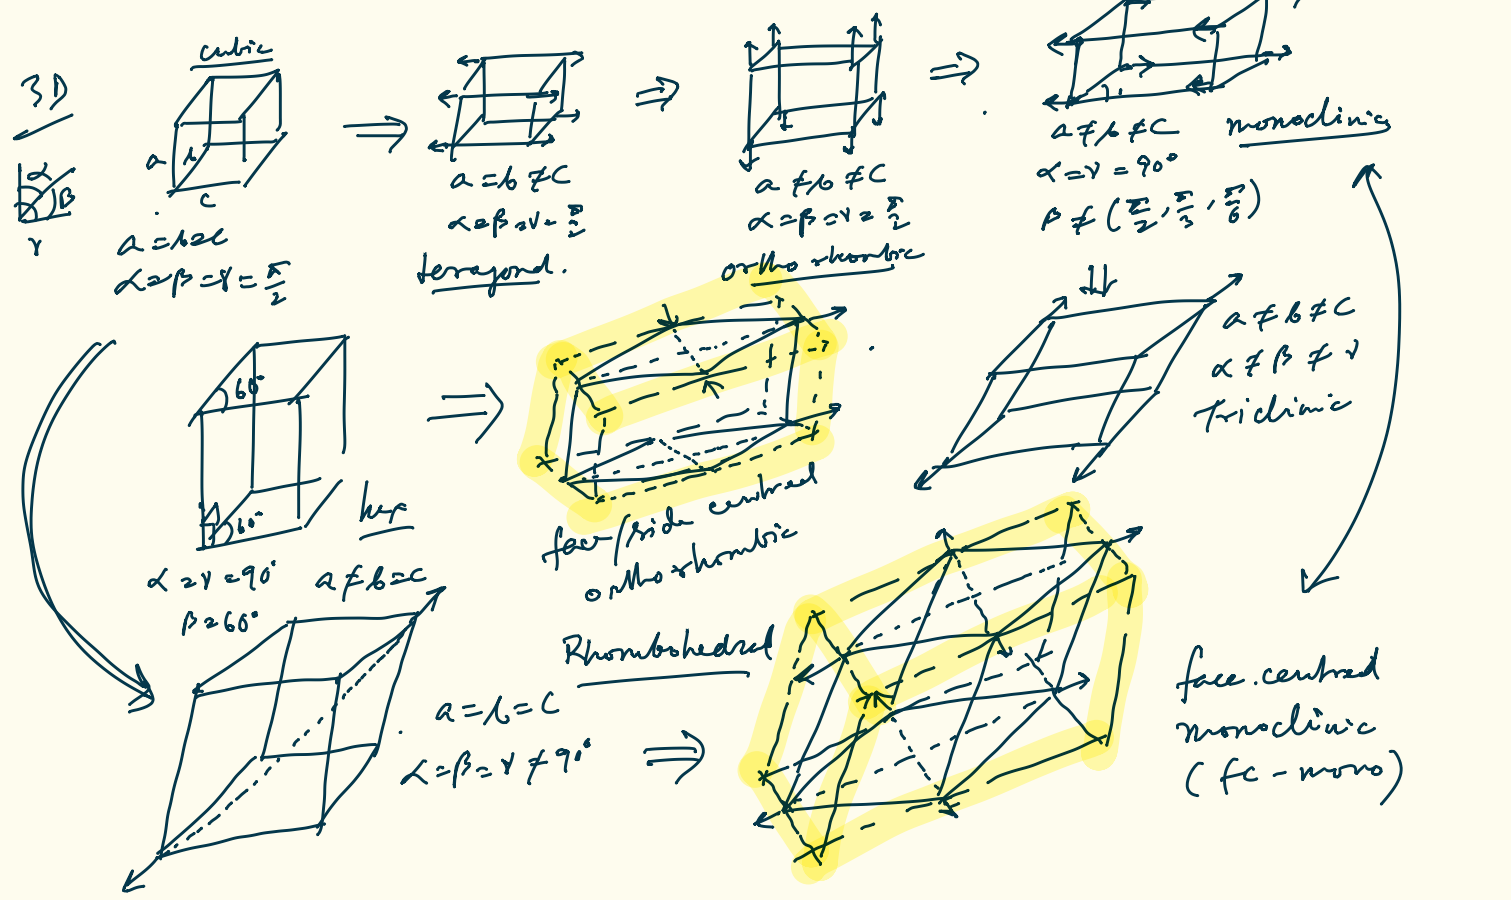 3D
cubic
α
β
γ
a
b
c
a = b = c
α = β = γ = π/2
a = b ≠ c
α = β = γ = π/2
a ≠ b ≠ c
α = β = γ = π/2
ortho rhombic
a ≠ b ≠ c
α = γ = 90°
β ≠ (π/2, π/3, π/6)
monoclinic
a ≠ b ≠ c
α ≠ β ≠ γ
Triclinic
60°
60°
hex
α = γ = 90°
a ≠ b = c
β = 60°
face/side centred
orthorhombic
Rhombohedral
a = b = c
α = β = γ ≠ 90°
face centred
monoclinic
(fc - mono)